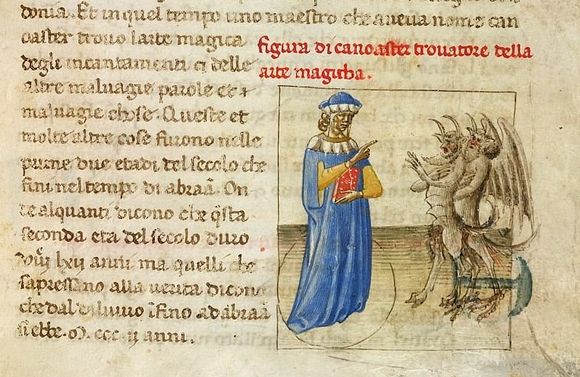 donia. Et in quel tempo uno maestro che aueua nome can
oaster trouo larte magica
degli incantamenti ci delle
altre maluagie parole et
maluagie chose. Queste et
molte altre cose furono nelle
prime due etadi del secolo che
fini nel tempo di abraā. On
de alquanti dicono che q̄sta
seconda eta del secolo duro
anni ma quelli che
sapressino alla uerita dicono
che dal diluuio īfino ad abraā
si ebbe .ꝏ. ccc ii anni.
figura di canoaster trouatore della
arte magicha.